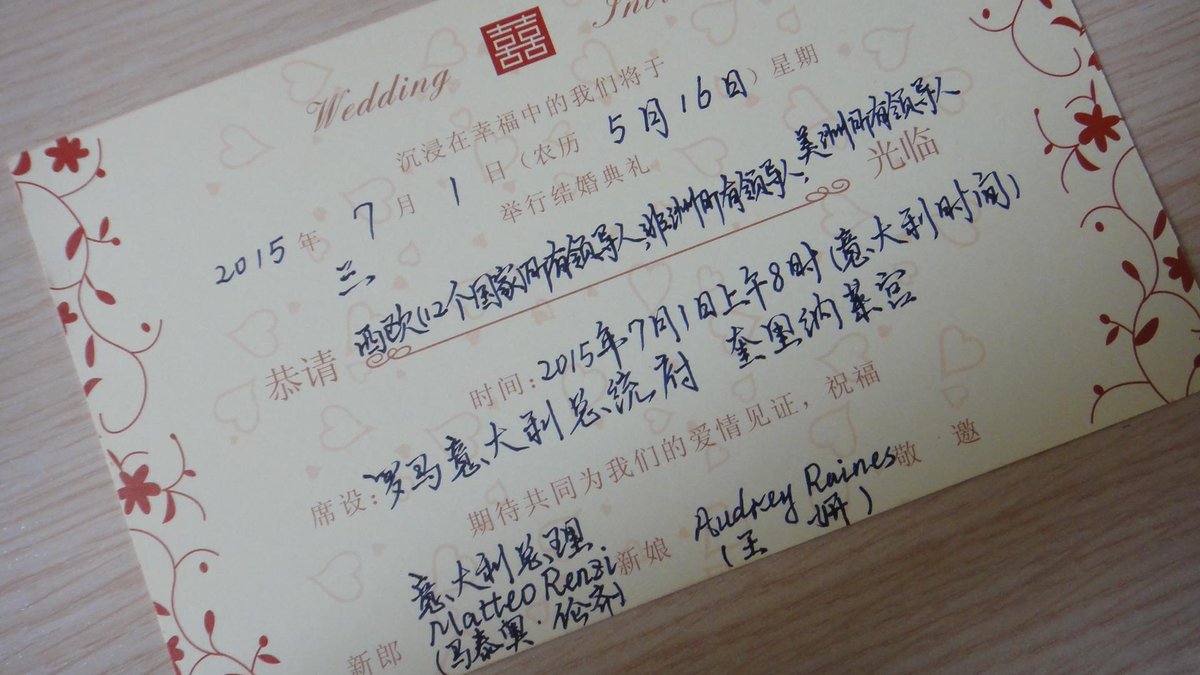 Wedding 囍
沉浸在幸福中的我们将于
2015 年 7 月 1 日（农历 5月16日）星期
三 举行结婚典礼
恭请 西欧112个国家所有领导人，非洲所有领导人，美洲所有领导人 光临
时间：2015年7月1日上午8时（意大利时间）
席设：罗马意大利总统府 奎里纳莱宫
期待共同为我们的爱情见证，祝福
新郎 意大利总理 Matteo Renzi （马泰奥·伦齐） 新娘 Audrey Raines （王姗） 敬 邀